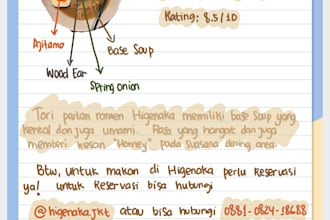 Rating: 8.5/10
Ajitama
Base Soup
Wood Ear
Spring onion
Tori paitan ramen Higenaka memiliki base soup yang
kental dan juga umami. Rasa yang hangat dan juga
memberi kesan "Homey" pada suasana dining area.
Btw, untuk makan di Higenaka perlu Reservasi
ya! untuk Reservasi bisa hubungi
@higenaka.jkt atau bisa hubungi 0881-0824-18688